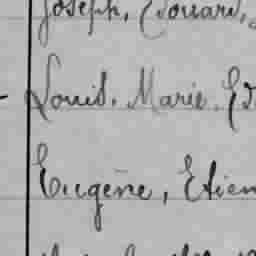 Joseph, Edouard,
- Louis. Marie. Ed
Eugène, Etien